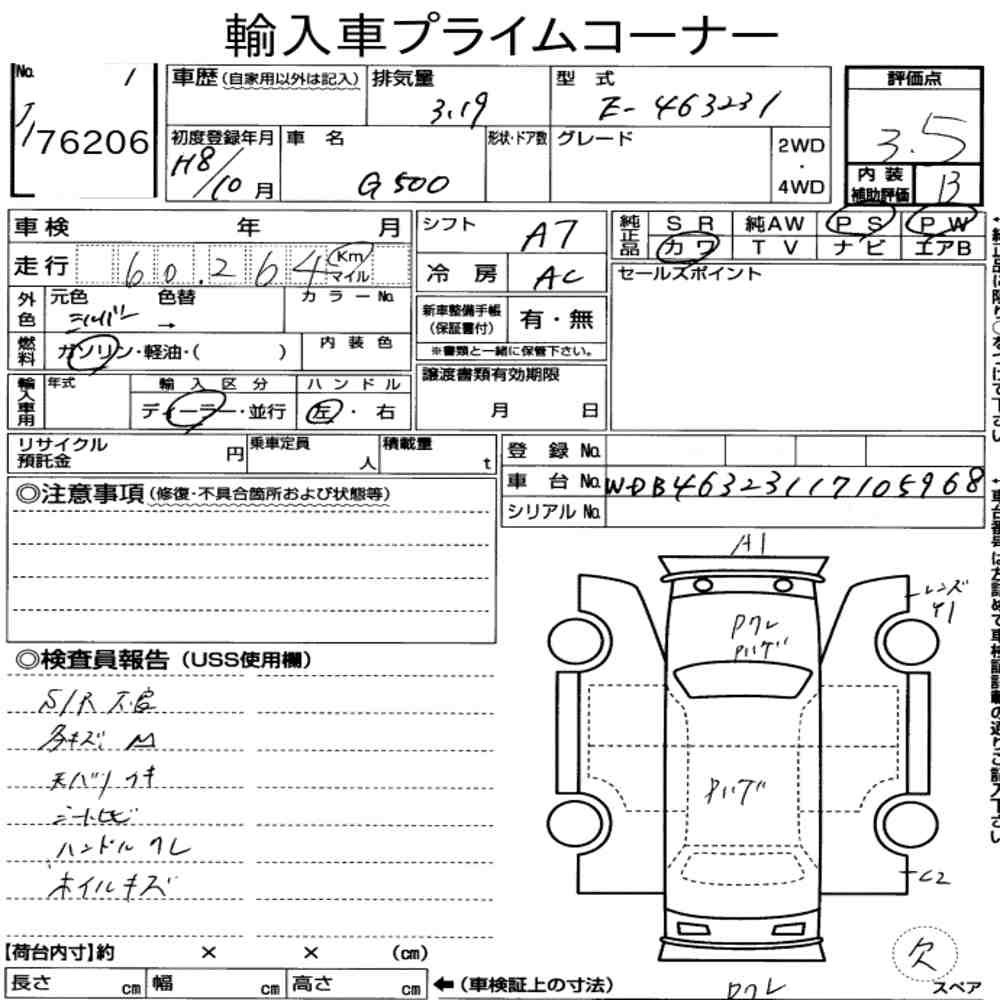 輸入車プライムコーナー
No. 1
76206
車歴 (自家用以外は記入)
排気量
3.19
型式
E-463231
評価点
3.5
初度登録年月
H8/10月
車名
G500
形状・ドア数
グレード
2WD
・
4WD
内装
補助評価
B
車検 年 月
走行 60.264 Km
マイル
シフト
A7
冷房
AC
純正品
SR 純AW PS PW
カワ TV ナビ エアB
セールスポイント
外色
元色 色替
シルバー →
カラーNo.
新車整備手帳
(保証書付)
有・無
※書類と一緒に保管下さい。
燃料
ガソリン・軽油・( )
内装色
譲渡書類有効期限
月 日
輸入車用
年式
輸入区分
ディーラー・並行
ハンドル
左・右
リサイクル
預託金 円
乗車定員
人
積載量
t
登録No.
車台No. WDB46323117105968
シリアルNo.
◎注意事項 (修復・不具合箇所および状態等)
A1
レンズ
Y1
Pクレ
Pハゲ
Pハゲ
C2
Pクレ
欠
スペア
◎検査員報告 (USS使用欄)
多キズ M
天バリ ウキ
ハンドル クレ
ホイルキズ
【荷台内寸】約 × × (cm)
長さ cm 幅 cm 高さ cm
←(車検証上の寸法)